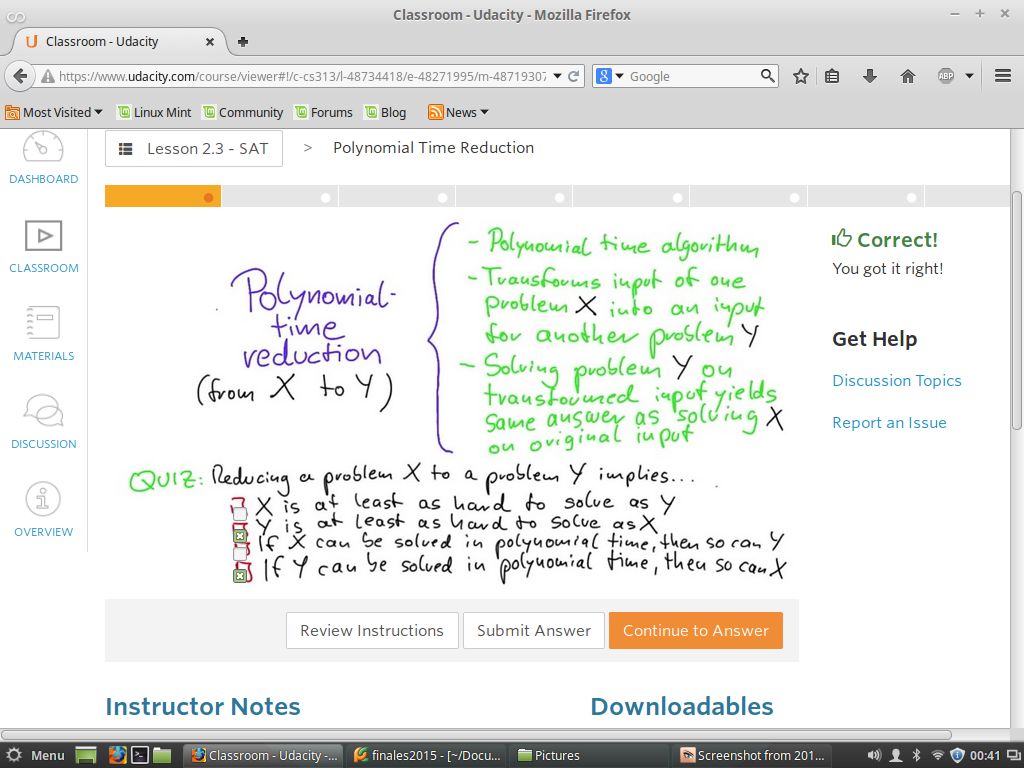 Classroom - Udacity - Mozilla Firefox
Classroom - Udacity
https://www.udacity.com/course/viewer#!/c-cs313/l-48734418/e-48271995/m-48719307
Google
ABP
Most Visited
Linux Mint
Community
Forums
Blog
News
Lesson 2.3 - SAT > Polynomial Time Reduction
DASHBOARD
CLASSROOM
MATERIALS
DISCUSSION
OVERVIEW
Polynomial-
time
reduction
(from X to Y)
- Polynomial time algorithm
- Transforms input of one
problem X into an input
for another problem Y
- Solving problem Y on
transformed input yields
same answer as solving X
on original input
QUIZ: Reducing a problem X to a problem Y implies...
X is at least as hard to solve as Y
Y is at least as hard to solve as X
If X can be solved in polynomial time, then so can Y
If Y can be solved in polynomial time, then so can X
Correct!
You got it right!
Get Help
Discussion Topics
Report an Issue
Review Instructions
Submit Answer
Continue to Answer
Instructor Notes
Downloadables
Menu
Classroom - Udacity -...
finales2015 - [~/Docu...
Pictures
Screenshot from 201...
00:41